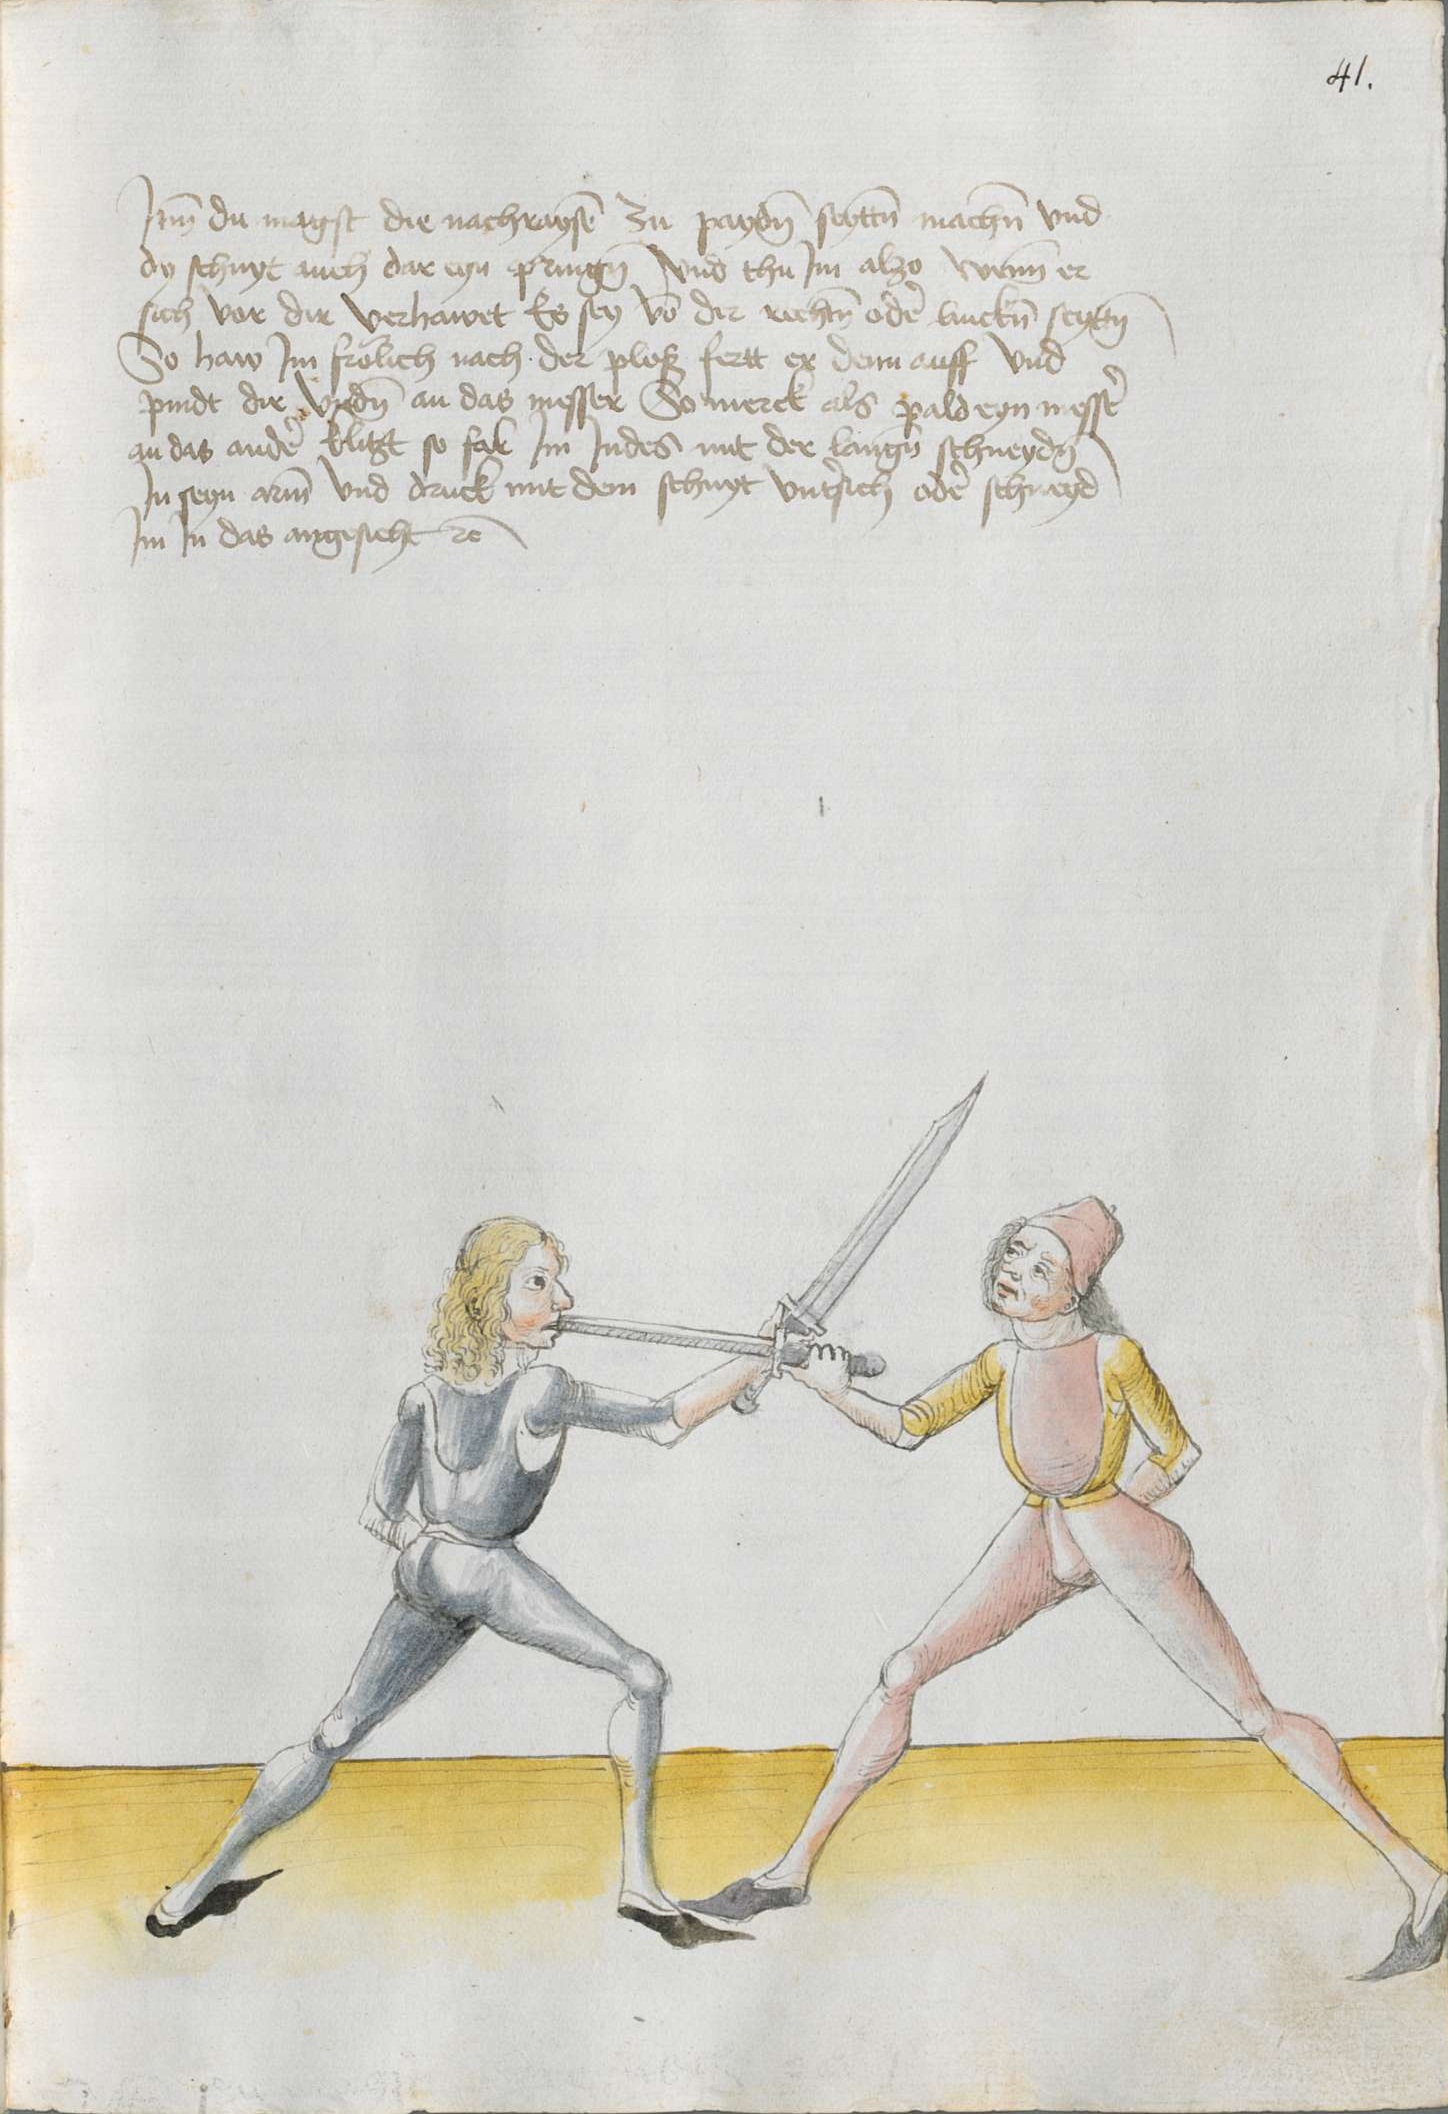 41.
Itm̄ du magst die nachraysē zu paydn̄ seyttn̄ machn̄ vnd
dy schnyt auch dar eyn pringn̄ Vnd thu Im alzo wenn er
sich vor dir verhawet Es sey vō der rechtn̄ oder linckn̄ seyttn̄
So haw Im frölich nach der ploß fert er denn auff vnd
pindt dir vndn̄ an das messer So merck als pald eyn messer
an das ander klitzt so fal Im Indes mit der langn̄ schneydn̄
In seyn arm̄ vnd druck mit dem schnyt vntersich oder schneyd
Im In das angesicht ꝛc̄